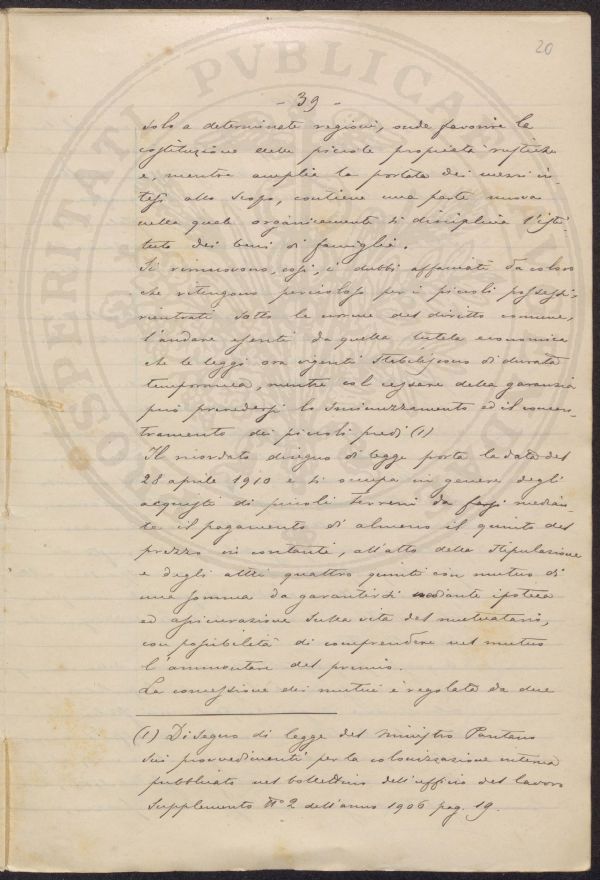 20
PROSPERITATI PVBLICAE
- 39 -
solo a determinate regioni, onde favorire la
costituzione delle piccole proprietà rustiche
e, mentre amplia la portata dei mezzi in-
tesi allo scopo, contiene una parte nuova
nella quale organicamente si disciplina l'isti-
tuto dei beni di famiglia.
Si rimuovono, così, i dubbi affacciati da coloro
che ritengono pericoloso per i piccoli possessi,
rientrati sotto le norme del diritto comune,
l'andare esenti da quella tutela economica
che le leggi ora vigenti stabiliscono di durata
temporanea, mentre col cessare della garanzia
può prevedersi lo sminuzzamento ed il concen-
tramento dei piccoli predi (1)
Il ricordato disegno di legge porta la data del
28 aprile 1910 e si occupa in genere degli
acquisti di piccoli terreni da farsi median-
te il pagamento di almeno il quinto del
prezzo in contanti, all'atto della stipulazione
e degli altri quattro quinti con mutuo di
una somma da garantirsi mediante ipoteca
ed assicurazione sulla vita del mutuatario,
con possibilità di comprendere nel mutuo
l'ammontare del premio.
La concessione dei mutui è regolata da due
(1) Disegno di legge del Ministro Pantano
sui provvedimenti per la colonizzazione interna
pubblicato nel bollettino dell'ufficio del lavoro
Supplemento No 2 dell'anno 1906 pag. 19.